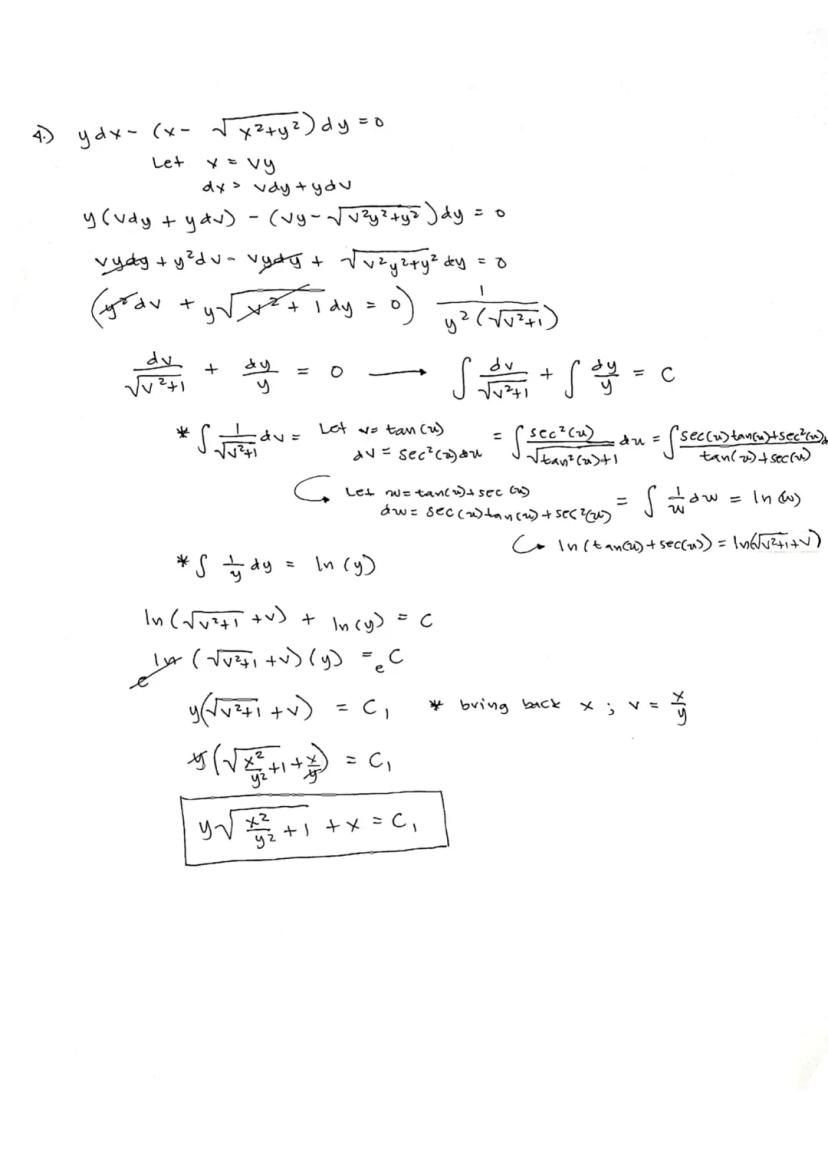 4.) ydx - (x - √(x²+y²)) dy = 0
Let x = vy
dx = vdy + ydv
y(vdy + ydv) - (vy - √(v²y²+y²)) dy = 0
vydy + y²dv - vydy + √(v²y²+y²) dy = 0
(y²dv + y√(v²+1) dy = 0) 1/(y²(√(v²+1)))
dv/√(v²+1) + dy/y = 0 → ∫ dv/√(v²+1) + ∫ dy/y = C
* ∫ 1/√(v²+1) dv = Let v = tan(u) = ∫ sec²(u)/√(tan²(u)+1) du = ∫ (sec(u)tan(u)+sec²(u))/(tan(u)+sec(u))
dv = sec²(u)du
Let w = tan(u) + sec(u)
dw = sec(u)tan(u) + sec²(u) = ∫ 1/w dw = ln(w)
ln(tan(u)+sec(u)) = ln(√(v²+1)+v)
* ∫ 1/y dy = ln(y)
ln(√(v²+1) + v) + ln(y) = C
e ln(√(v²+1) + v)(y) = e C
y(√(v²+1) + v) = C₁ * bring back x ; v = x/y
y(√(x²/y²+1) + x/y) = C₁
y√(x²/y² + 1) + x = C₁